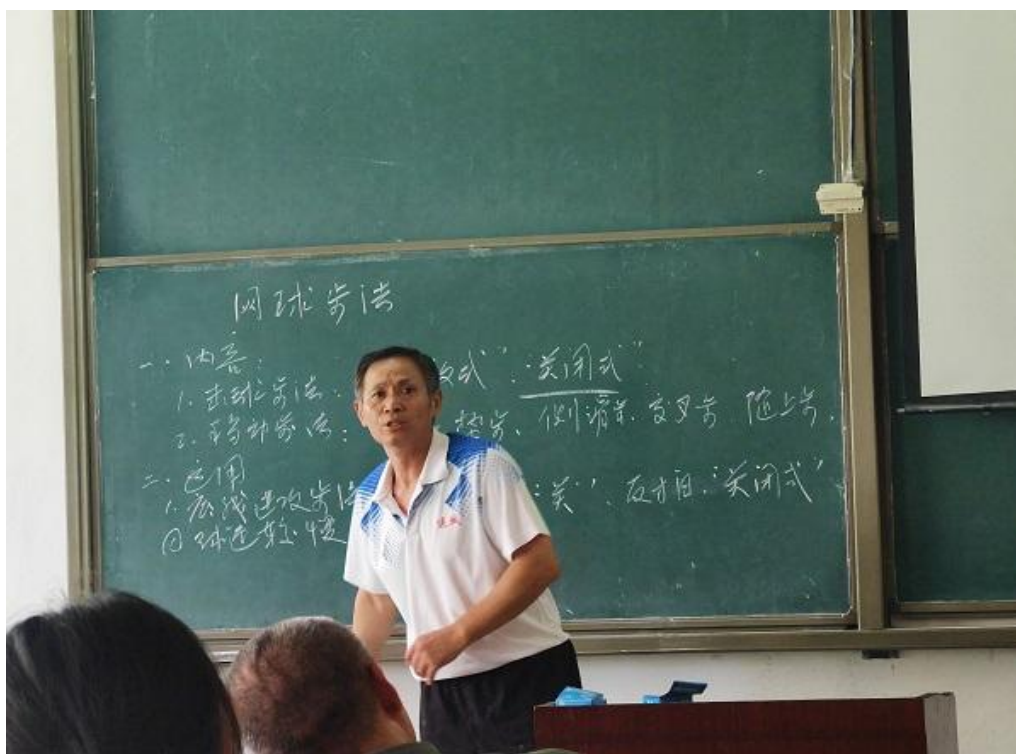 网球步法
一. 内容:
1. 击球步法: 放式" "关闭式"
2. 移动步法: 垫步、侧滑步、交叉步 随上步.
二. 运用
1. 底线进攻步法 "关"、反才目: "关闭式"
① 球速较慢